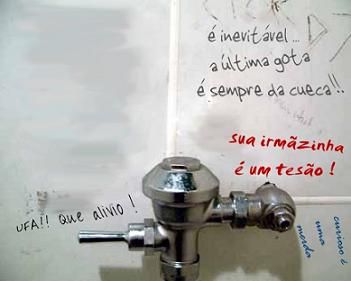 é inevitável...
a última gota
é sempre da cueca!!
sua irmãzinha
é um tesão!
UFA!! que alivio!
curioso é
uma
merda